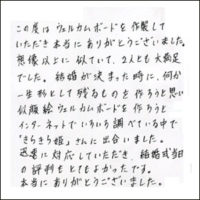 この度はウェルカムボードを作製して
いただき本当にありがとうございました。
想像以上に似ていて、2人とも大満足
でした。結婚が決まった時に、何か
一生形として残るものを作ろうと思い
似顔絵ウェルカムボードを作ろうと
インターネットでいろいろ調べている中で
「きらきら堂」さんに出会いました。
迅速に対応していただき、結婚式当日
の評判もとてもよかったです。
本当にありがとうございました。